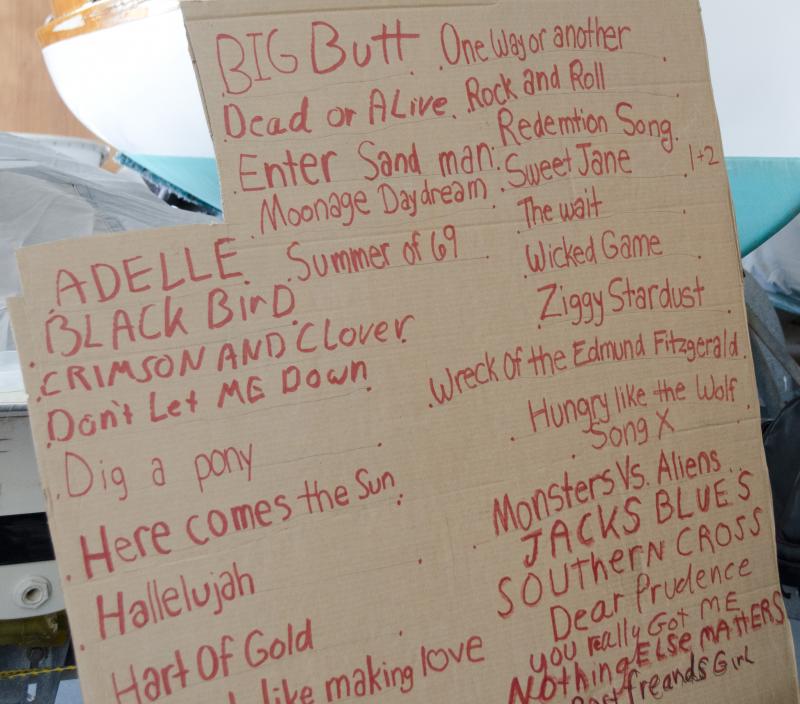 BIG Butt
Dead or ALive.
Enter Sand man.
Moonage Daydream
ADELLE. Summer of 69
BLACK BirD
CRIMSON AND Clover
Don't Let ME Down
Dig a pony
Here comes the Sun
Hallelujah
Hart Of Gold
like making love
One Way or another
Rock and Roll
Redemtion Song.
Sweet Jane 1+2
The wait
Wicked Game
Ziggy Stardust
Wreck Of the Edmund Fitzgerald.
Hungry like the Wolf
Song X
Monsters Vs. Aliens
JACKS BLUES
SOUTHERN CROSS
Dear Prudence
you really Got ME
NOthing ELSE MATTERS
freands Girl